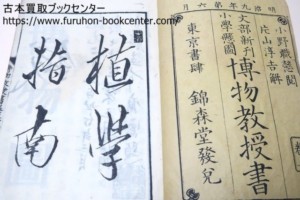 古本買取ブックセンター
https://www.furuhon-bookcenter.com/
明治九年第六月
小野職愨閲
片山淳吉解
文部新刊
小學懸圖
博物教授書
東京書肆 錦森堂發兌
植學
指南